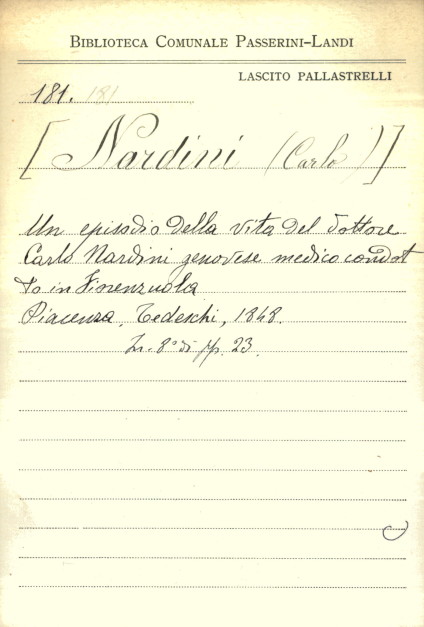 BIBLIOTECA COMUNALE PASSERINI-LANDI
LASCITO PALLASTRELLI
181. 181
[Nardini (Carlo)]
Un episodio della vita del dottore
Carlo Nardini genovese medico condot
to in Fiorenzuola
Piacenza, Tedeschi, 1848.
In-8° di pp. 23.